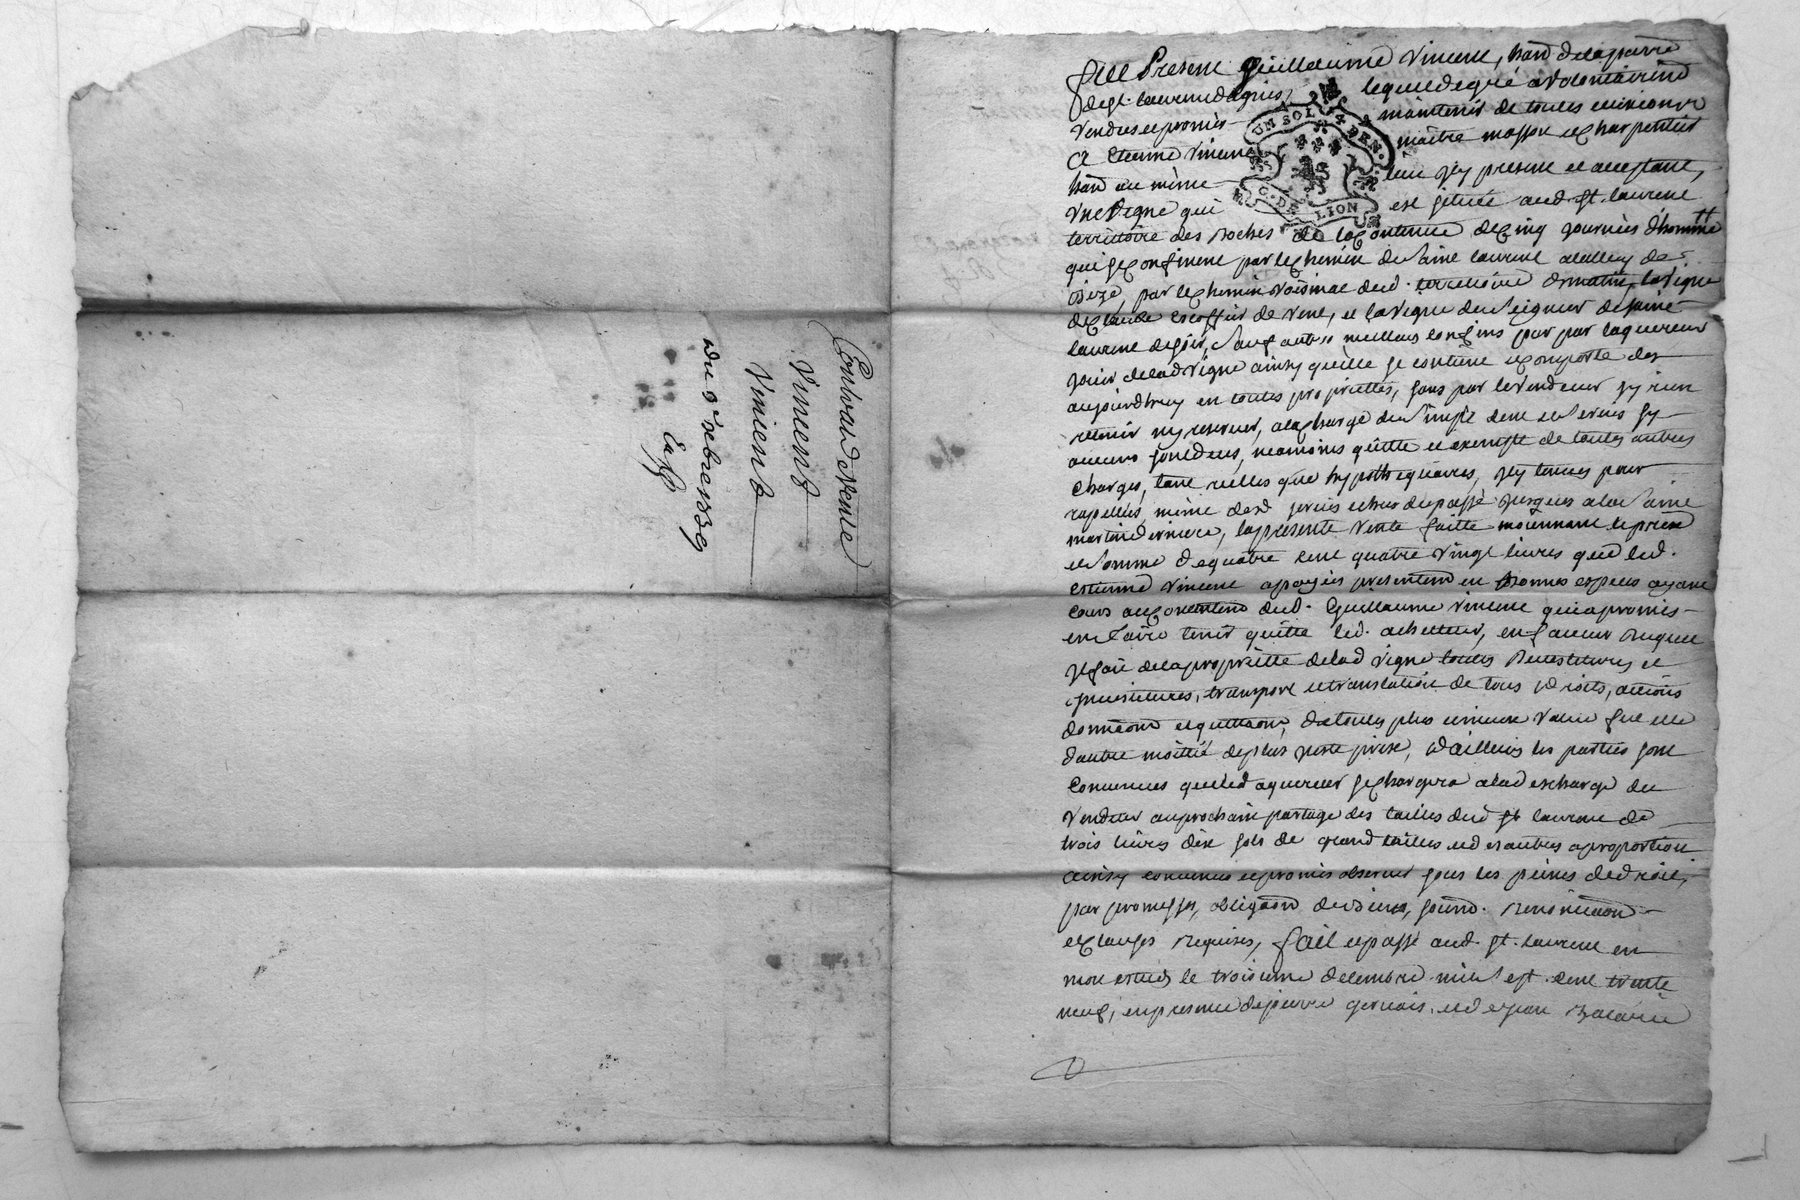 Contrat de Vente
Vincent
Vincent
Du 3e xbre 1739
Exp
UN SOL 4 DEN.
G. DE LION
fut Present Guillaume Vincent, hant de la parre
de st. laurent dagnis, lequel de gré a volontairemt
Vendu et promis maintenir de toutes evictions
a Etienne Vincent maitre masson et charpentier
hant au même lieu jcy present et acceptant,
une Vigne qui est scituée aud. st. laurent
territoire des Roches de la Contenue de Cinq Journées d'homme
qui se Confinent par le Chemin de saint laurent
par le Chemin Voisinal dud. territoire de matin, la Vigne
de Claude escoffier de Vent, et la Vigne du seigneur de saint
laurent de soir, sauf autres meilleurs confins pour par laquereur
jouir de lad Vigne ainsy quelle se contient et comporte des
aujourdhuy en toutes proprietées, sans par le Vendeur sy rien
retenir ny reserver, a la Charge du simple cens et servis sy
aucuns sont deus, neamoins quitte et exempte de toutes autres
Charges, tant reelles que hypothequaires, jcy tenues pour
rapellées même desd servis echus du passé jusques a la saint
martin derniere, la presente Vente faitte moiennant le prix
et somme de quatre cent quatre vingt livres que led.
estienne Vincent a payées presentemt en bonnes especes ayant
cours au Contentemt dud. Guillaume Vincent qui a promis
en faire tenir quitte led. achetteur, en faveur duquel
jl fait de la proprieté de lad Vigne toutes Devestitures et
jnvestitures, transport et translation de tous droits, actions
donnaon et quittaon, de toutes plus
d'autre moitié de plus juste prix, d'ailleurs les parties sont
Convenues que led aquereur se chargera a la descharge du
Vendeur au prochain partage des tailles dud st laurent de
trois livres dix sols de grand tailles et des autres a proportion
ainsy convenu et promis observer sous les peines de droit,
par promesses, obligaon de biens, soumd. Renonciaon
et clauses requises, fait et passé aud. st. laurent en
mon estude le troisieme decembre mil sept cent trente
neuf, en presence de pierre gervais, et de jean